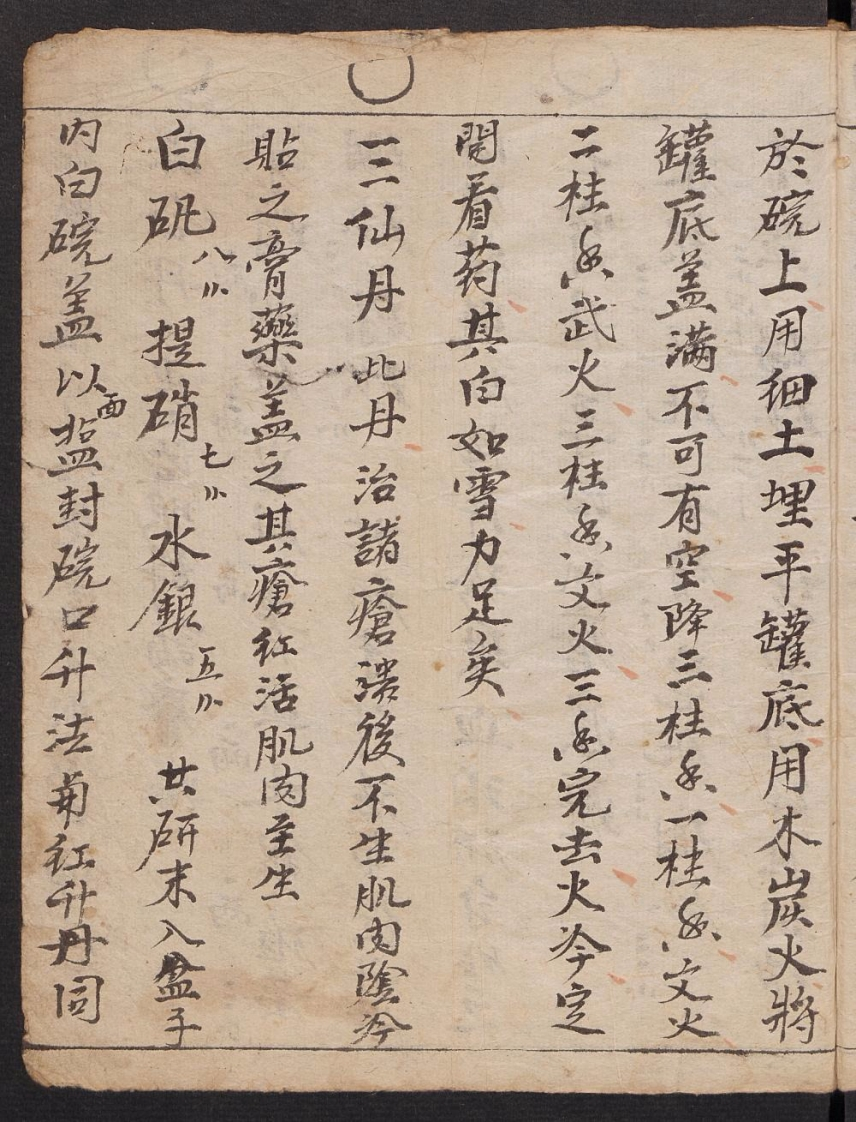 於碗上用细土埋平罐底用木炭火將
罐底盖满不可有空降三柱香一柱香文火
二柱香武火三柱香文火三香完去火冷定
開看药其白如雪力足矣
三仙丹 此丹治諸瘡潰後不生肌肉陰冷
貼之膏藥盖之其瘡红活肌肉立生
白矾 八〃 提硝 七〃 水銀 五〃 共研末入盆子
内白碗盖以面盐封碗口升法与红升丹同